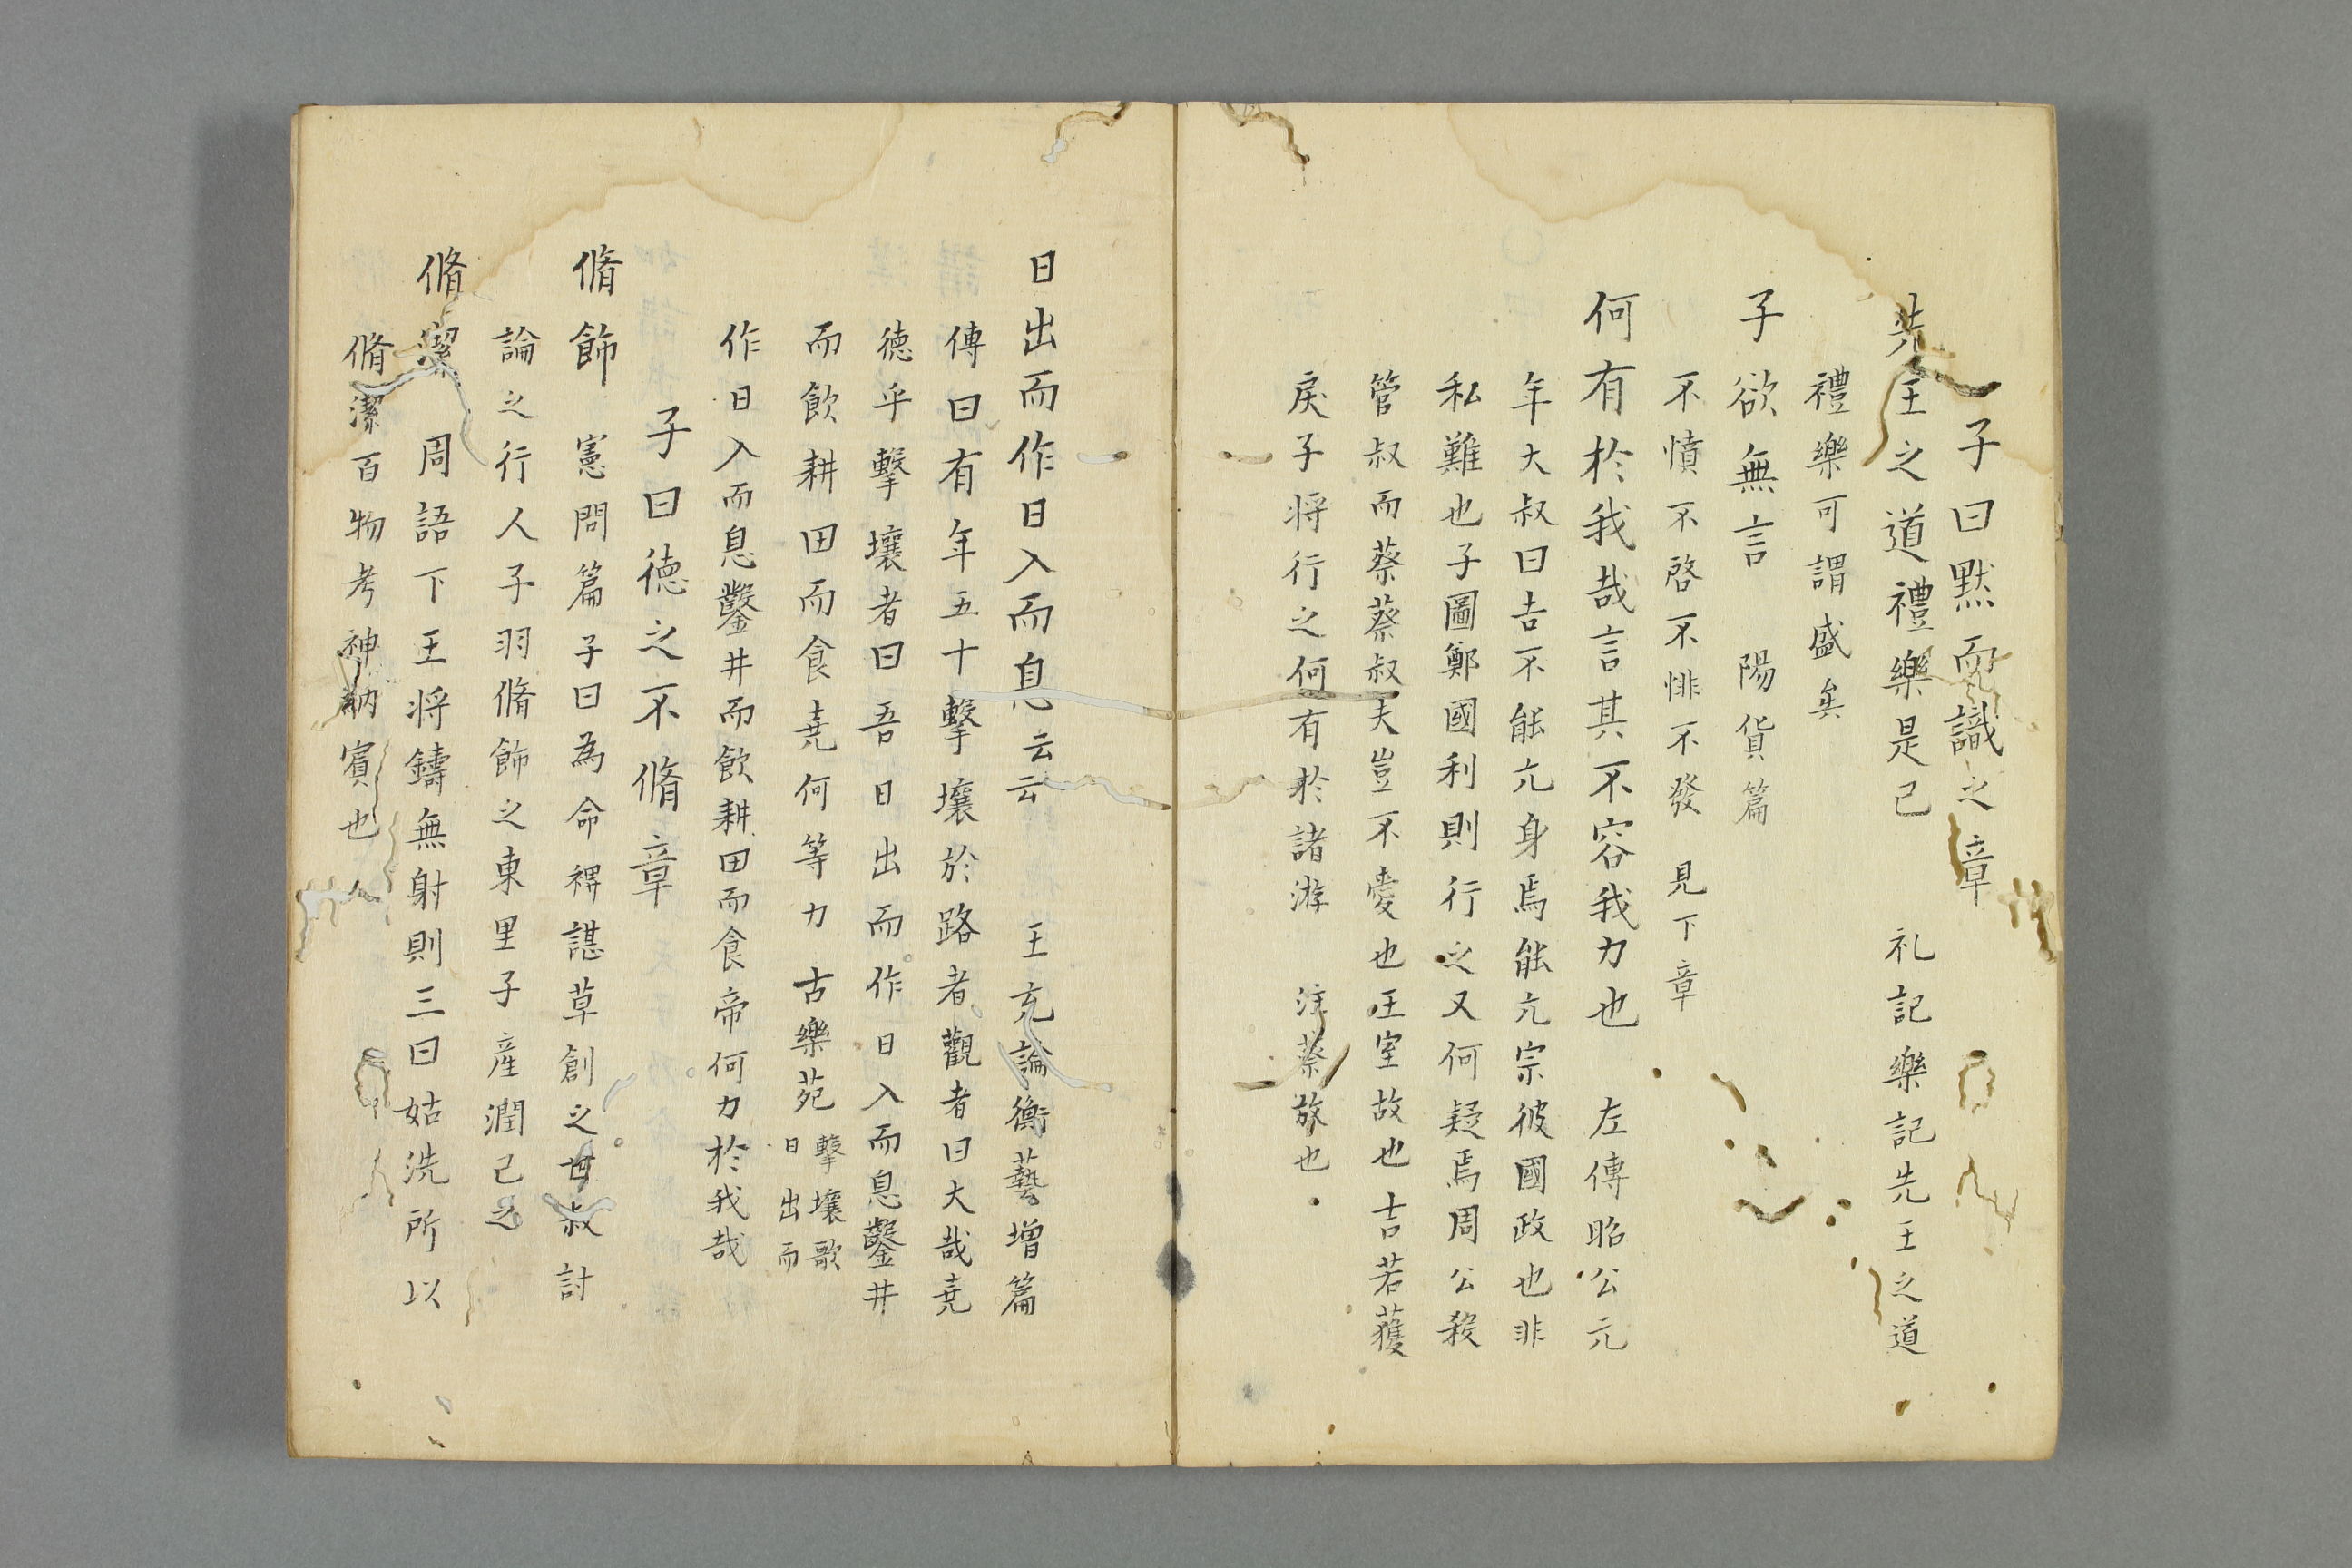 子曰黙而識之章
先王之道禮樂是已　礼記樂記先王之道
禮樂可謂盛矣
子欲無言　陽貨篇
不憤不啓不悱不發　見下章
何有於我哉言其不容我力也　左傳昭公元
年大叔曰吉不能亢身焉能亢宗彼國政也非
私難也子圖鄭國利則行之又何疑焉周公殺
管叔而蔡蔡叔夫豈不愛也王室故也吉若獲
戾子将行之何有於諸游　注蔡放也
日出而作日入而息云云　王充論衡藝增篇
傳曰有年五十擊壤於路者觀者曰大哉堯
徳乎擊壤者曰吾日出而作日入而息鑿井
而飲耕田而食堯何等力　古樂苑　擊壤歌
日出而
作日入而息鑿井而飲耕田而食帝何力於我哉
子曰徳之不脩章
脩飾　憲問篇子曰為命裨諶草創之世叔討
論之行人子羽脩飾之東里子産潤己之
脩潔　周語下王将鑄無射則三曰姑洗所以
脩潔百物考神納賓也